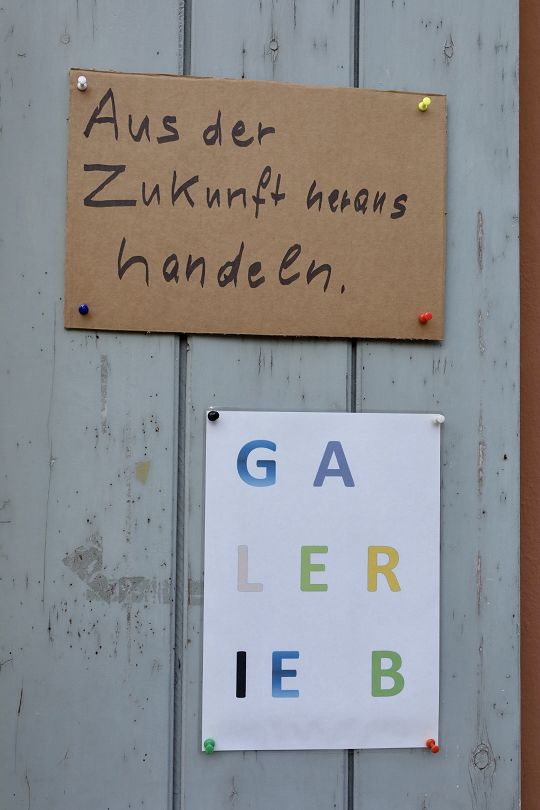 Aus der
Zukunft heraus
handeln.
G A
L E R
I E B